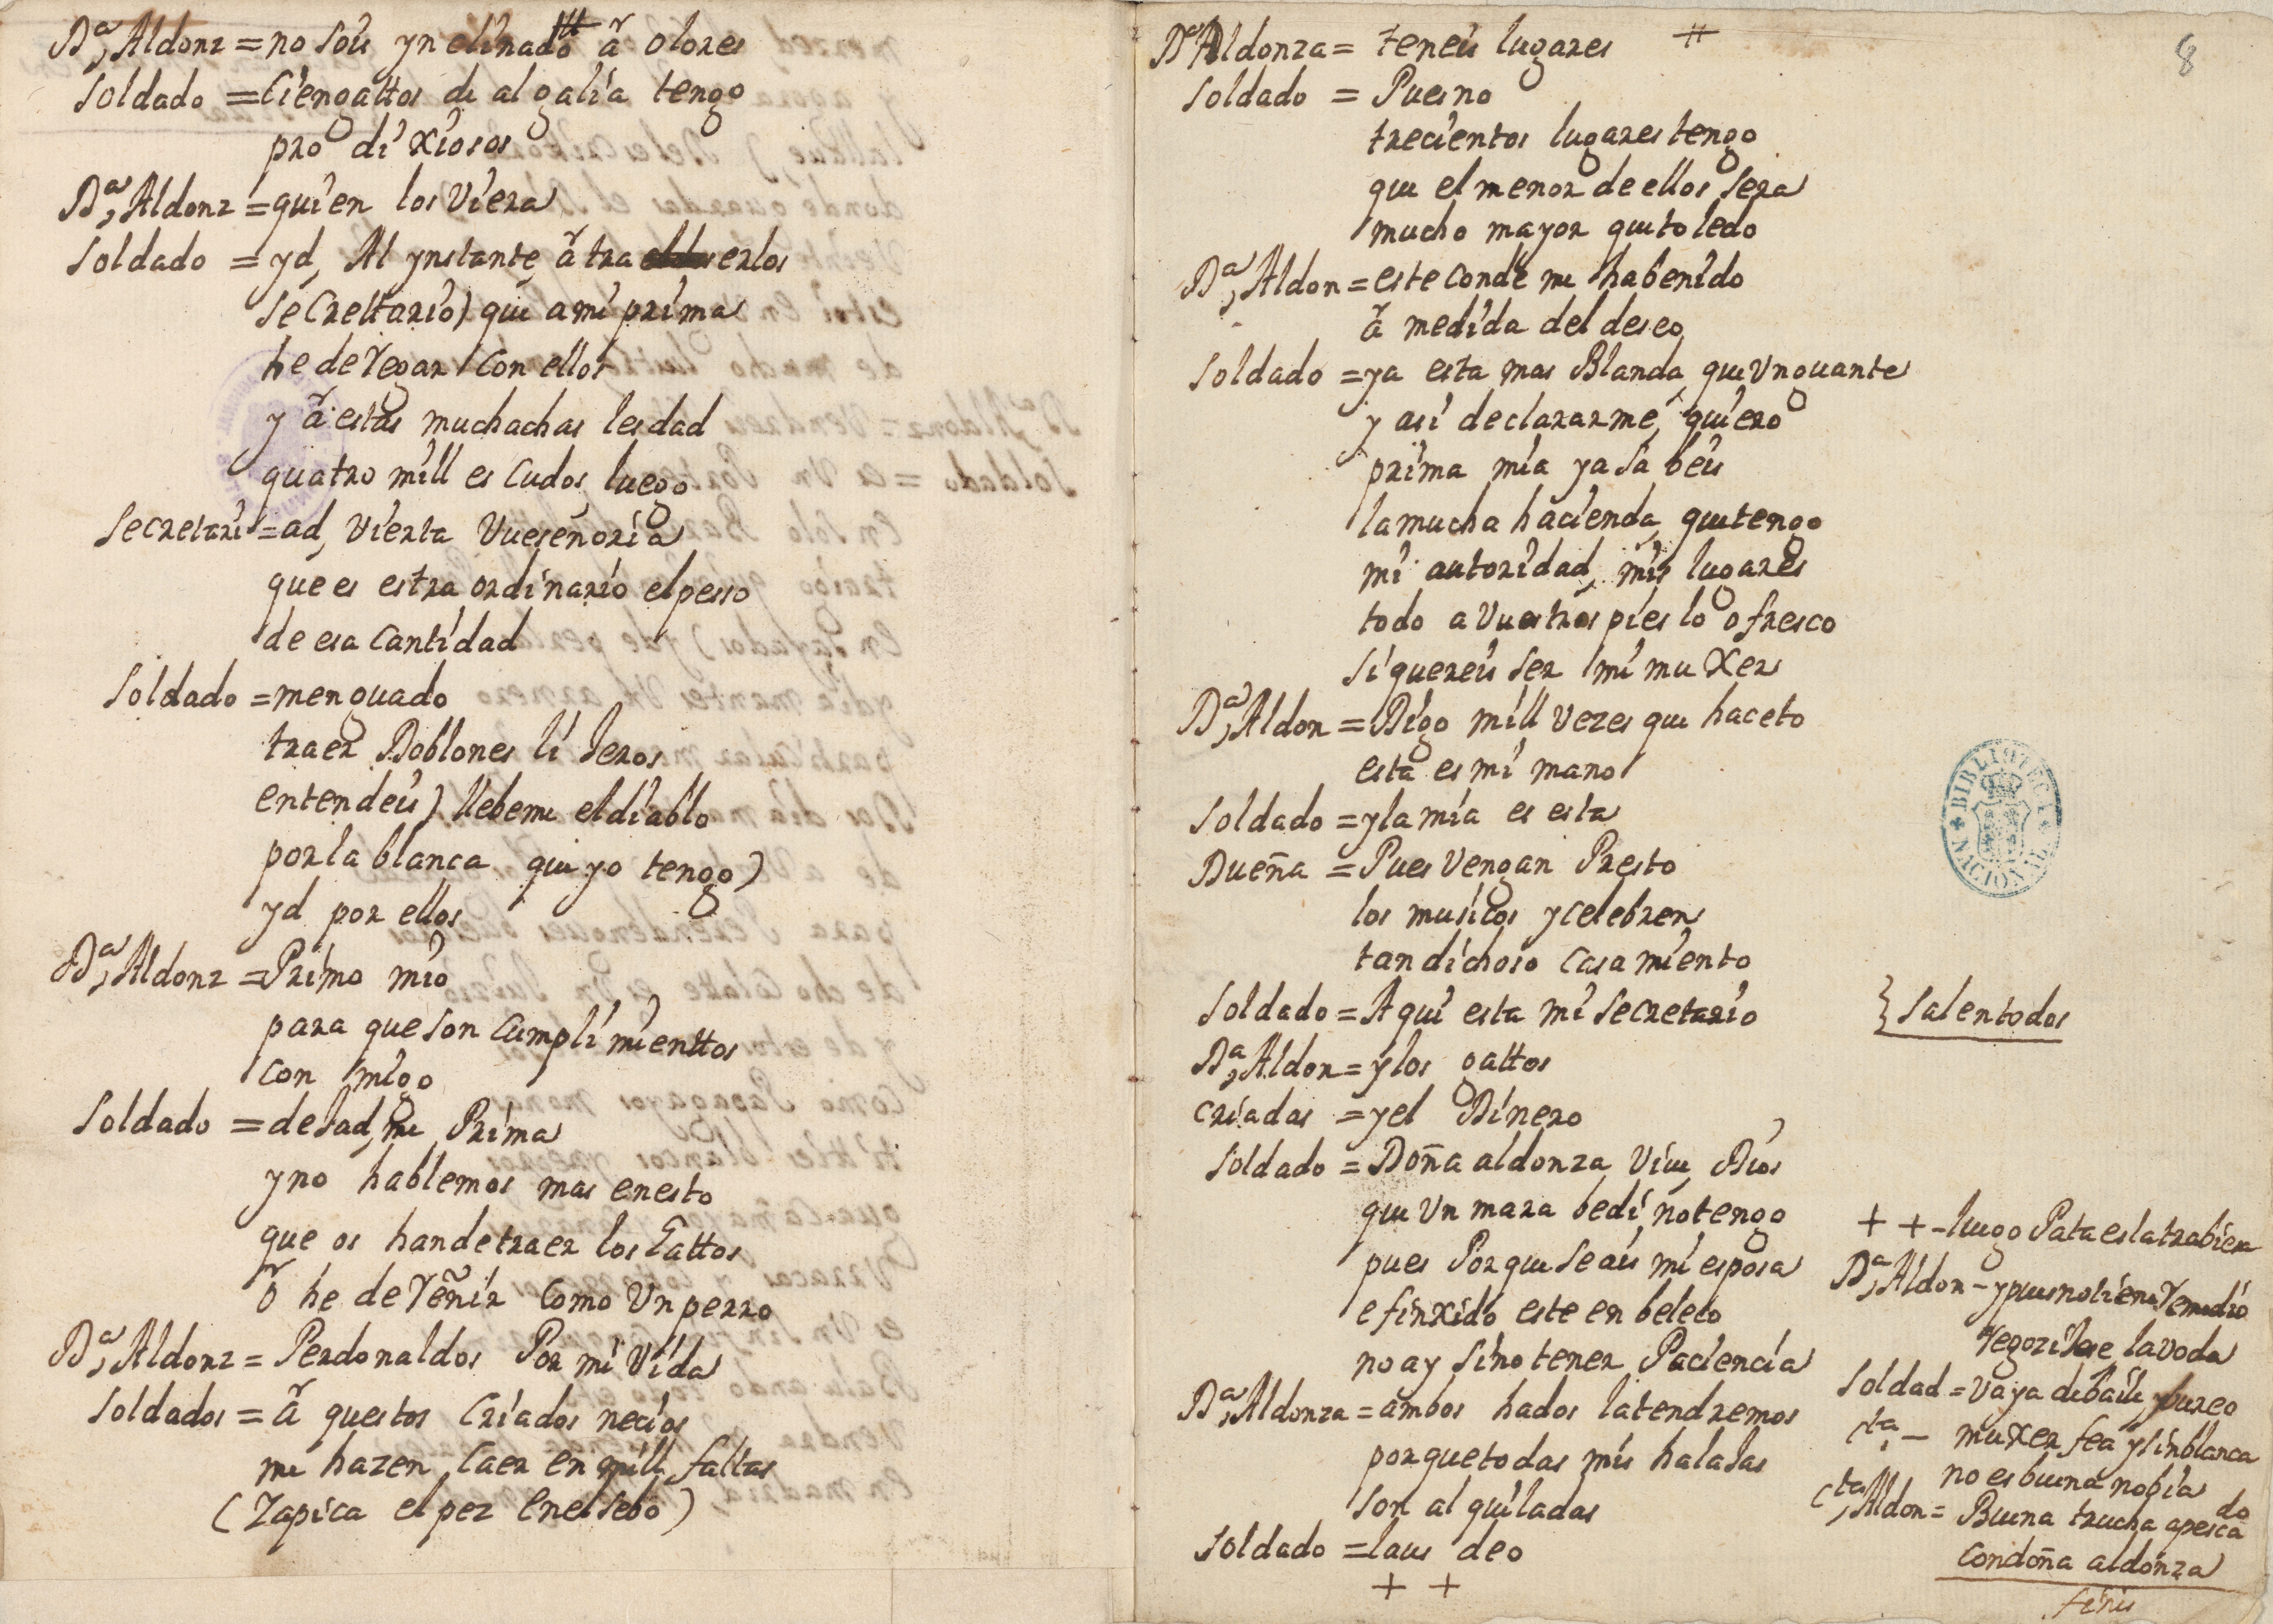 Dª, Aldonz = no sois ynclinado â olores
Soldado = Ciengattos de algalia tengo
pro di xiosos
Dª, Aldonz = quien los Viera
Soldado = yd, Al ynstante, â tra erlos
secrettario) que ami prima
he de regar con ellos
y â estas muchachas lesdad
quatro mill es cudos luego
Secretari = ad, vierta Vueseñoria
que es estra ordinario elpesso
de esa cantidad
Soldado = menguado
traer Doblones li Jeros
entendeis) llebeme eldiablo
porla blanca que yo tengo)
yd por ellos
Dª, Aldonz = Primo mio
para que son cumpli mienttos
con migo
Soldado = deJad, me Prima
yno hablemos mas enesto
que os handetraer los Gattos
ô he de reñir como Vn perro
Dª, Aldonz = Perdonaldos Por mi Vida
Soldados = â questos criados necios
me hazen caer en mill faltas
(Zapica el pez enelsebo)
Dª Aldonza = teneis lugares #
8
Soldado = Puesno
trecientos lugarestengo
que elmenor de ellos sera
mucho mayor quetoledo
Dª, Aldon = este conde me habenido
â medida del deseo
Soldado = ya esta mas Blanda, que Vnguante
y asi declararme, quiero
prima mia ya sa beis
lamucha hacienda, quetengo
mi autoridad, mis lugares
todo a Vuestros pies lo ofresco
si quereis ser mi mu xer
Dª, Aldon = Digo mill vezes que haceto
esta es mi mano
Soldado = yla mia es esta
Dueña = Pues Vengan Presto
los musicos ycelebren
tan dichoso casa miento
Soldado = Aqui esta mi secretario } salentodos
Dª, Aldon = ylos gattos
criadas = yel Dinero
Soldado = Doña aldonza Vive, Dios
que Vn mara bedi notengo
pues Porque seais mi esposa
e finxido este en beleco
no ay sino tener Paciencia
Dª, Aldonza = ambos hados latendremos
porquetodas mis halaJas
son al quiladas
Soldado = laus deo
+ +
+ + - luego Pata eslatrabiesa
Dª, Aldon - ypuesnotiene remedio
regoziJese laboda
Soldad = Vaya debaile, ypureo
cta, - muxer fea ysinblanca
no esbuena nobia
cta, Aldon = Buena trucha apescado
condoña aldonza
finis
BIBLIOTECA NACIONAL